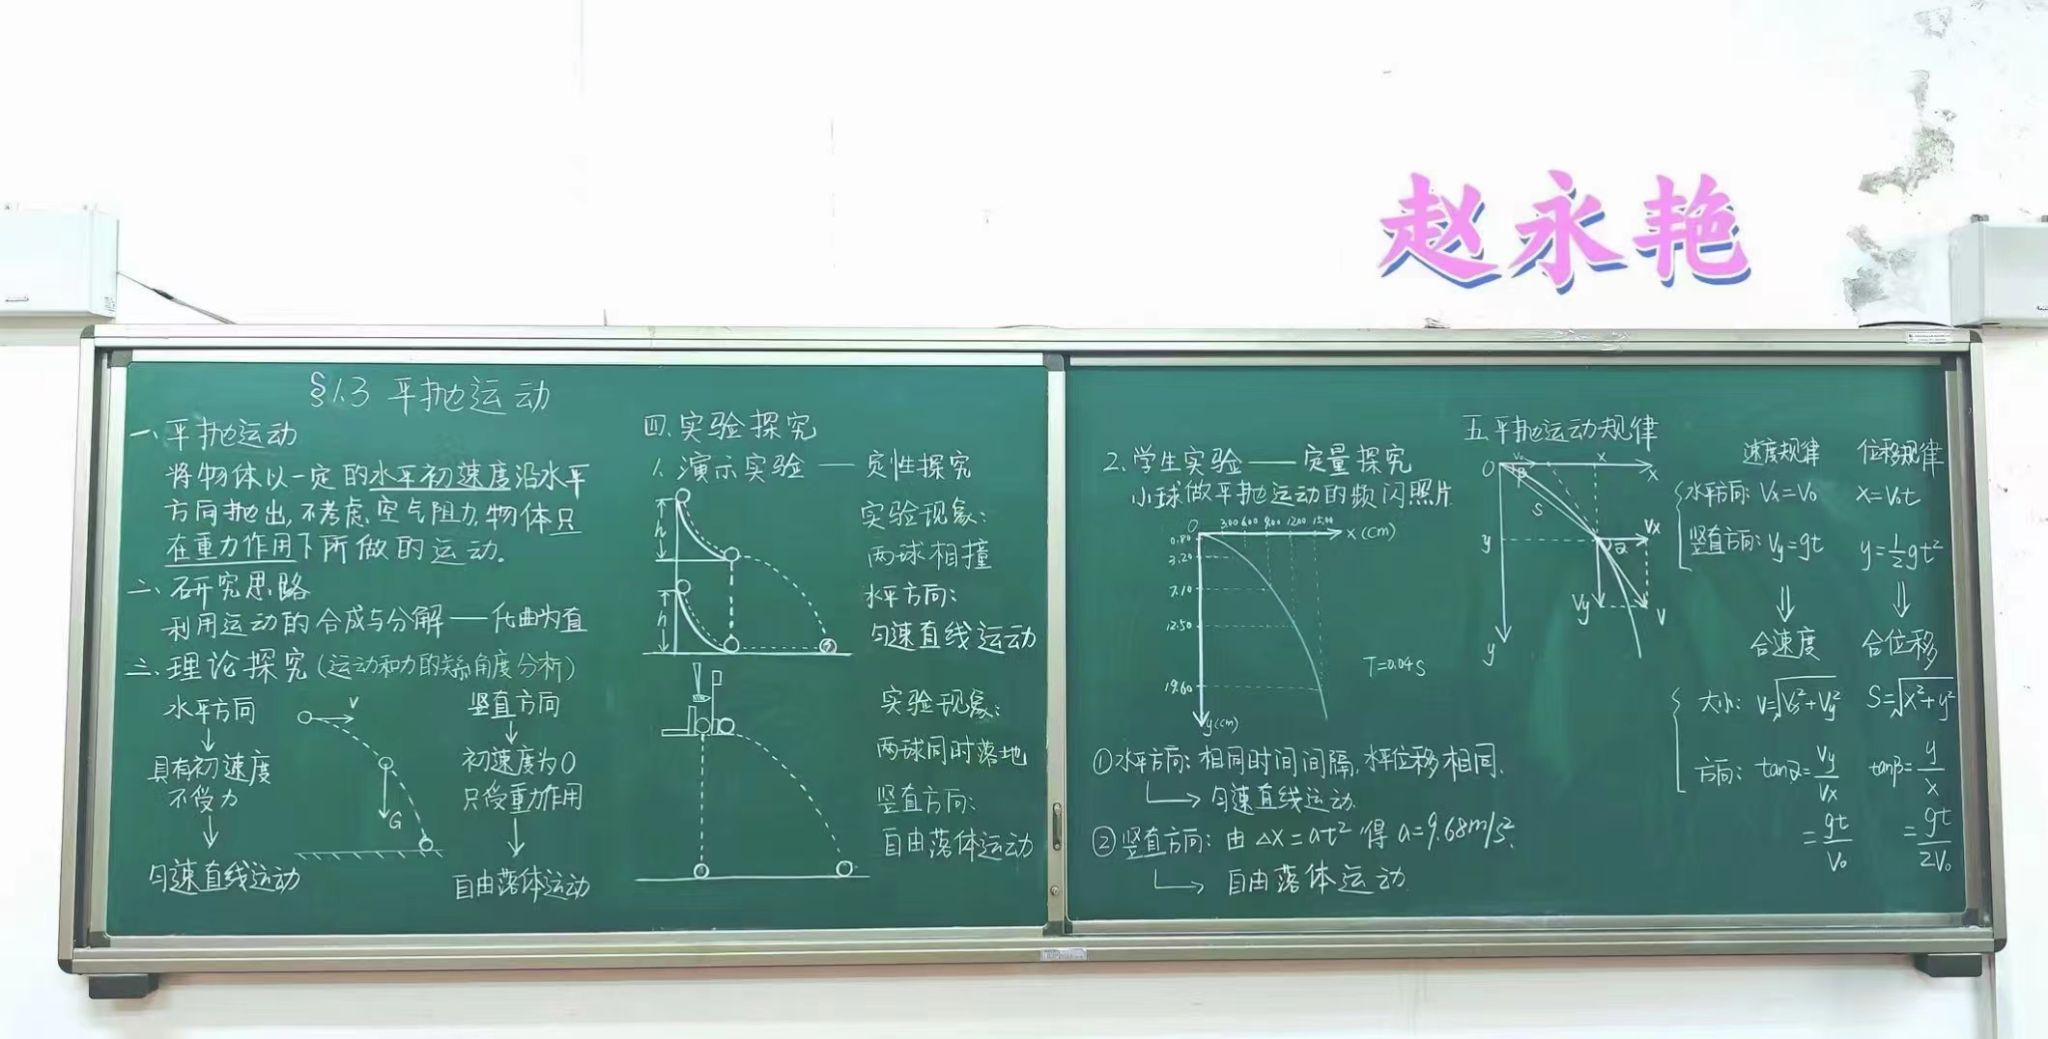 赵永艳
§1.3 平抛运动
一、平抛运动
将物体以一定的水平初速度沿水平
方向抛出,不考虑空气阻力,物体只
在重力作用下所做的运动.
二、研究思路
利用运动的合成与分解——化曲为直
三、理论探究(运动和力的关系角度分析)
水平方向
↓
具有初速度
不受力
↓
匀速直线运动
v
G
竖直方向
↓
初速度为0
只受重力作用
↓
自由落体运动
四.实验探究
1. 演示实验 —— 定性探究
h
h
实验现象:
两球相撞
水平方向:
匀速直线运动
实验现象:
两球同时落地
竖直方向:
自由落体运动
2.学生实验——定量探究
小球做平抛运动的频闪照片
0 3.00 6.00 9.00 12.00 15.00 x(cm)
0.80
3.20
7.10
12.50
19.60
y(cm)
T=0.04s
①水平方向:相同时间间隔,水平位移相同.
→匀速直线运动.
②竖直方向:由 △X=at² 得 a=9.68m/s².
→自由落体运动.
五.平抛运动规律
O v₀ x x
β
S
y α Vx
Vy V
y
速度规律 位移规律
水平方向: Vx=V₀ X=V₀t
竖直方向: Vy=gt y=½gt²
⇓ ⇓
合速度 合位移
大小: V=√V₀²+Vy² S=√x²+y²
方向: tanα=Vy/Vx tanβ=y/x
=gt/V₀ =gt/2V₀